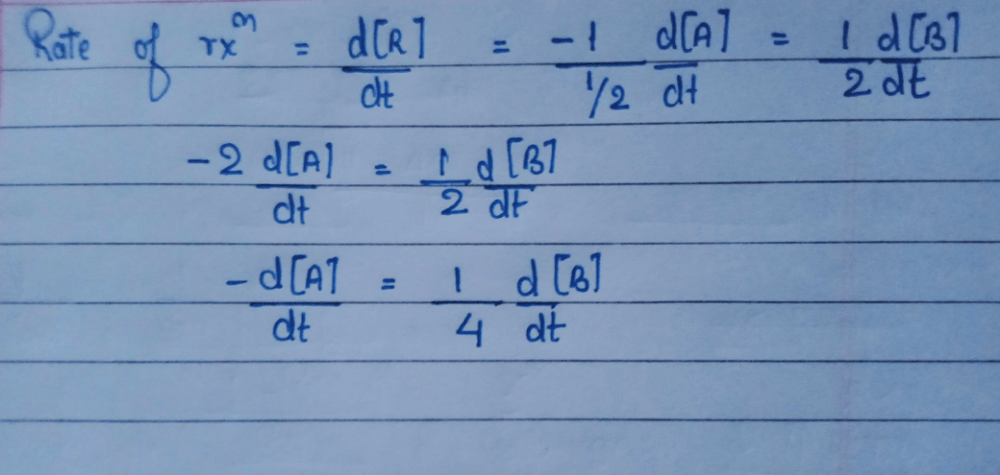 Rate of rxⁿ = d[R]/dt = -1/(1/2) d[A]/dt = 1/2 d[B]/dt
-2 d[A]/dt = 1/2 d[B]/dt
-d[A]/dt = 1/4 d[B]/dt